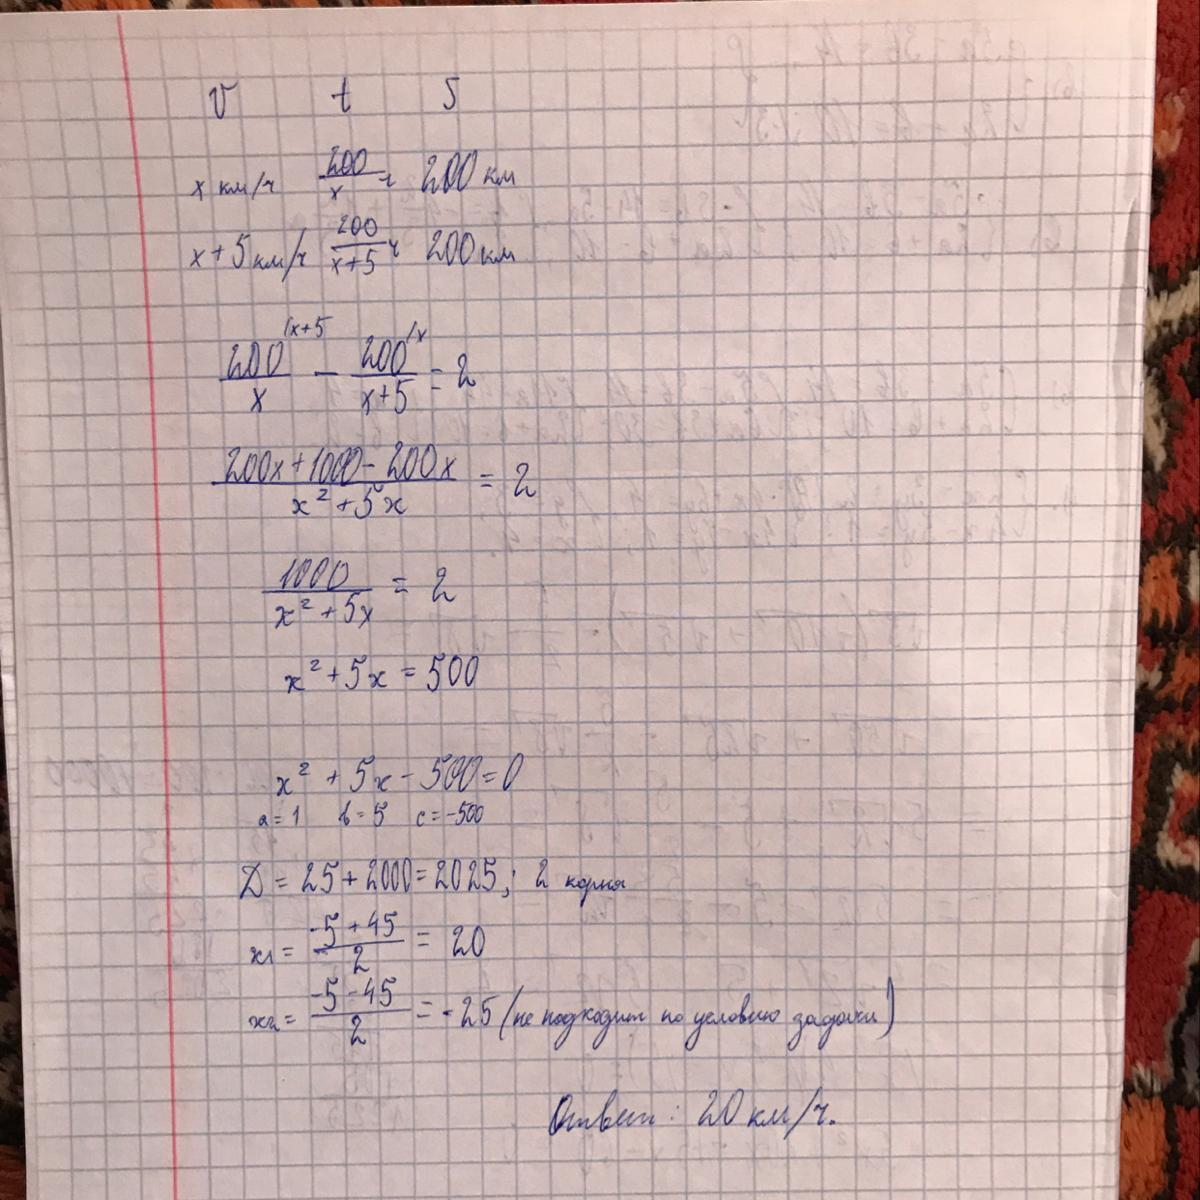 v t S
x км/ч 200/x ч 200 км
x+5 км/ч 200/x+5 ч 200 км
200/x /x+5 − 200/x+5 /x = 2
200x+1000−200x / x²+5x = 2
1000 / x²+5x = 2
x²+5x=500
x²+5x−500=0
a=1 b=5 c=−500
D=25+2000=2025; 2 корня
x₁= −5+45 / 2 = 20
x₂= −5−45 / 2 = −25 (не подходит по условию задачи)
Ответ: 20 км/ч.